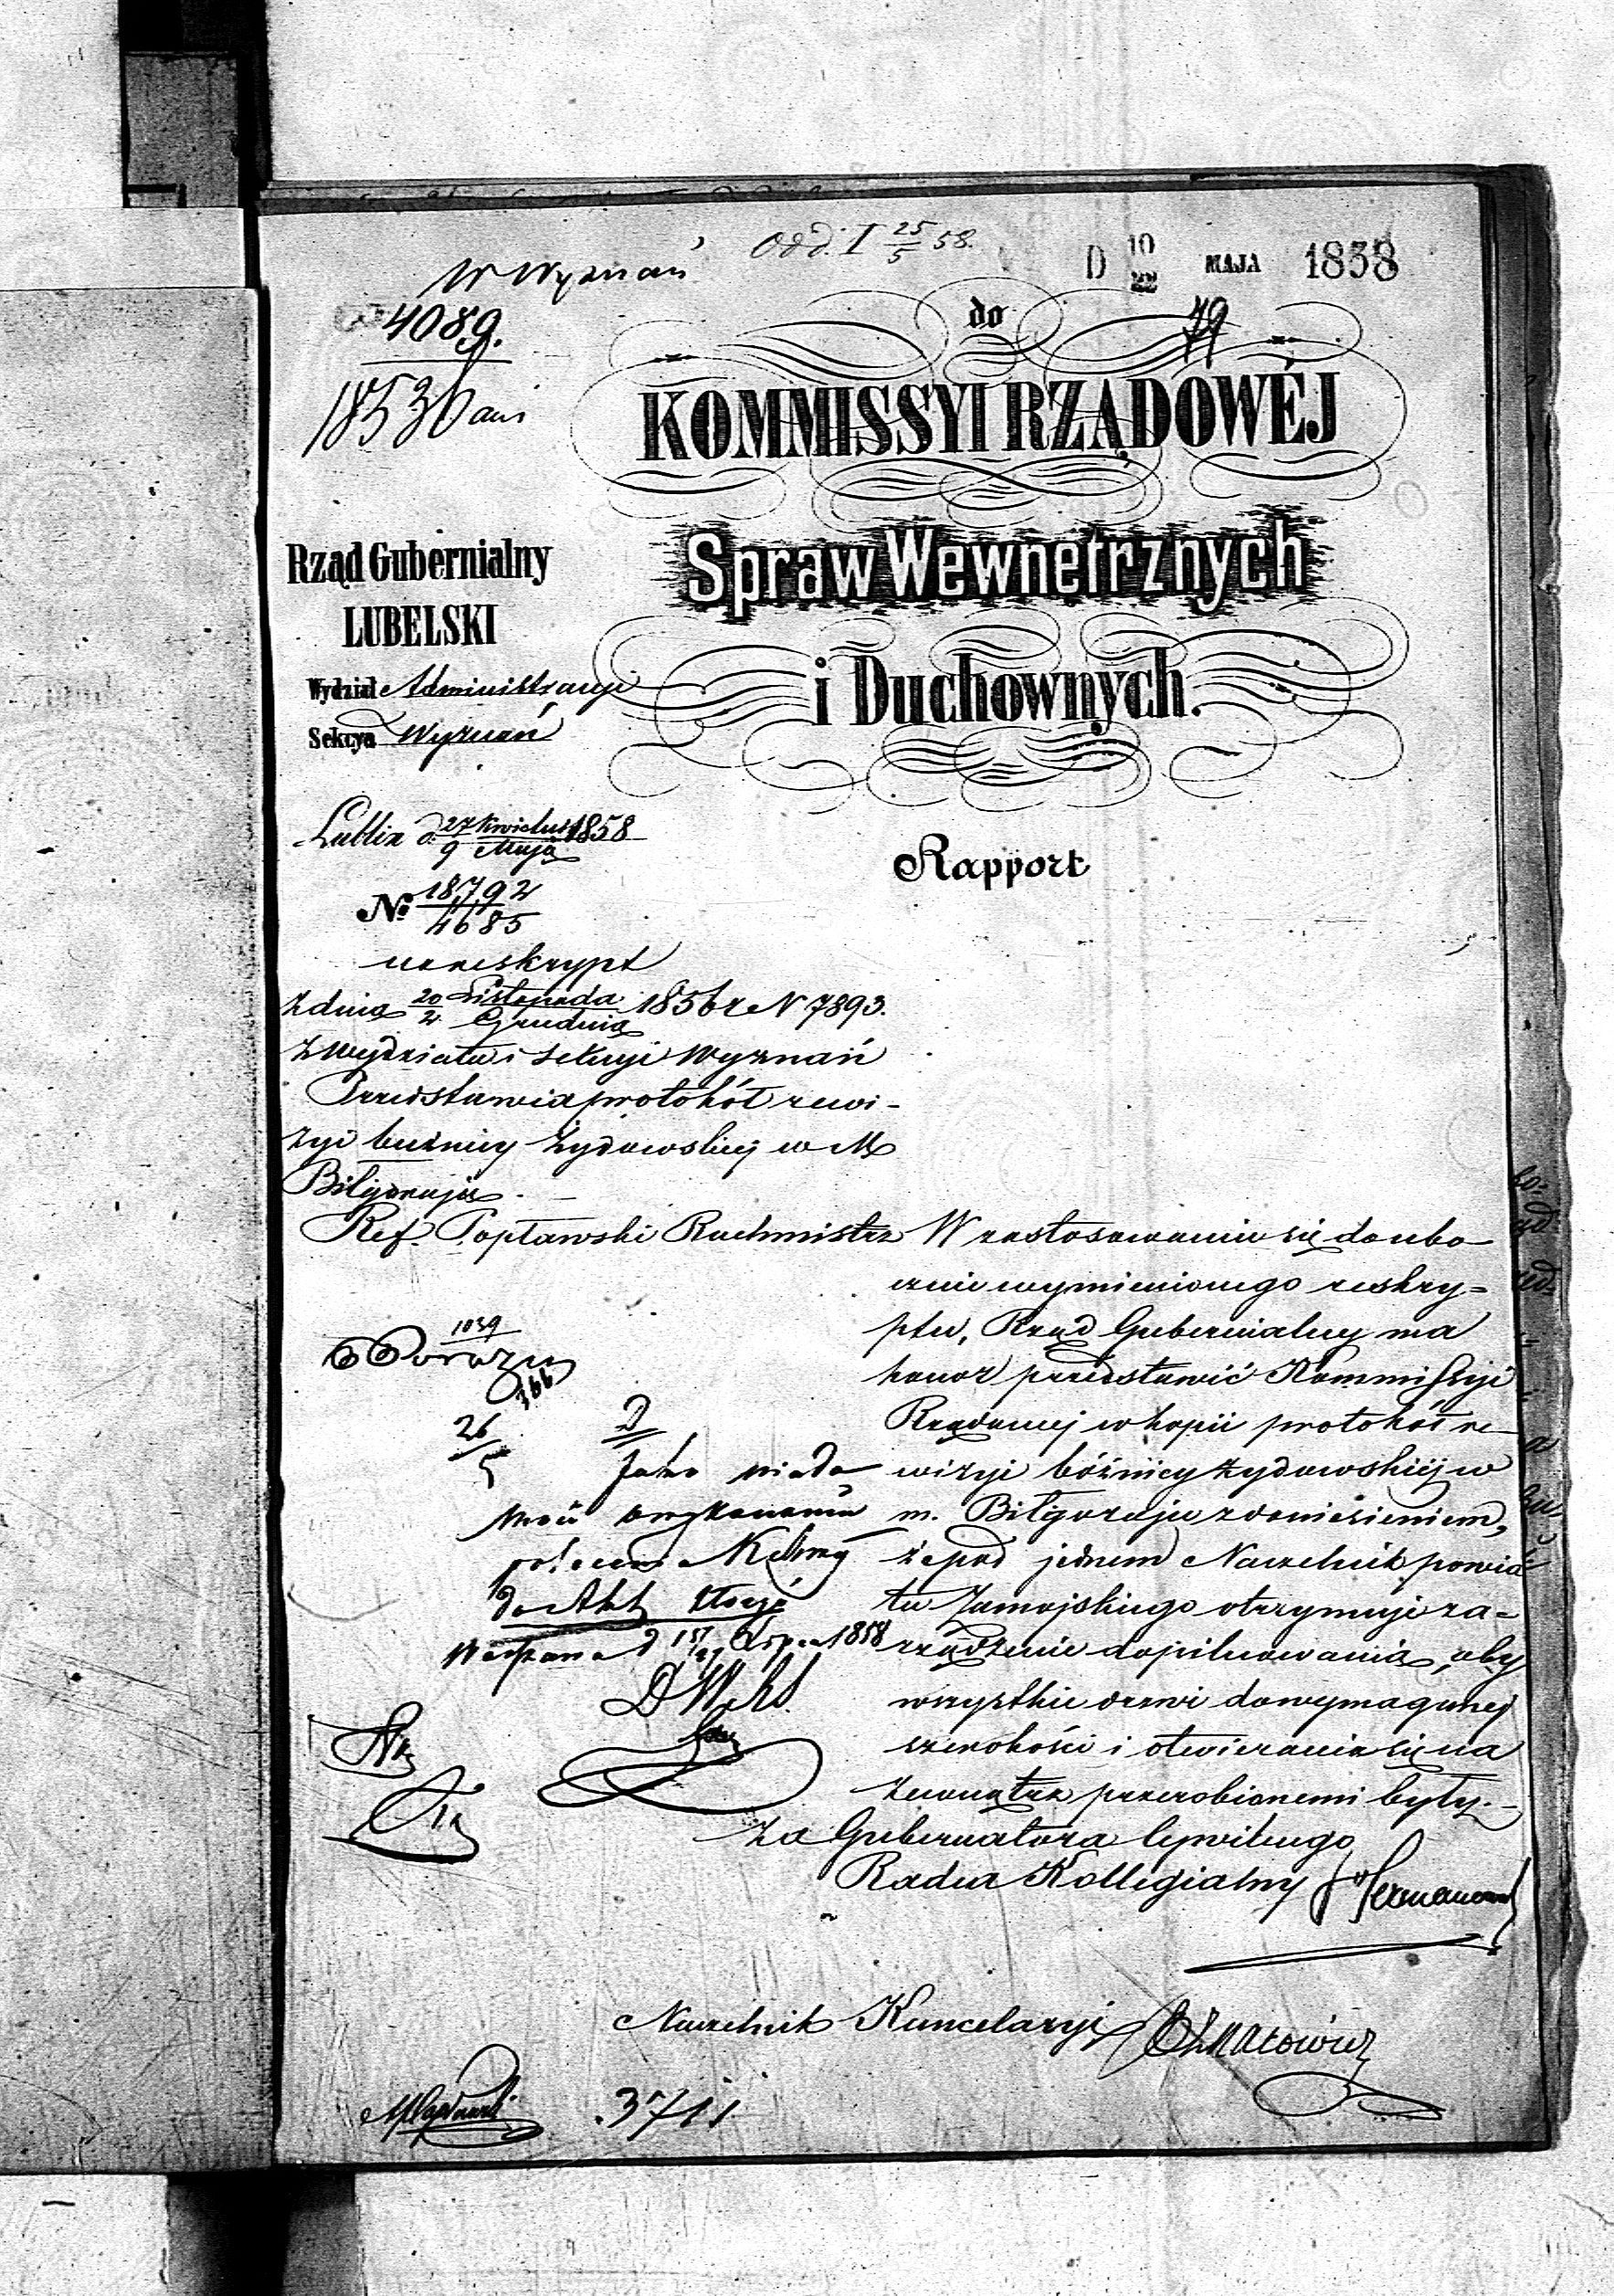 Odd. I 25/5 58.
D 10/22 MAJA 1858
W Wyznań
4089.
18536
79
do
KOMMISSYI RZĄDOWÉJ
Spraw Wewnetrznych
i Duchownych.
Rząd Gubernialny
LUBELSKI
Wydział Administracyi
Sekcya Wyznań
Lublin d. 27 Kwietnia / 9 Maja 1858
Rapport
№ 18792/4685
na reskrypt
z dnia 20 Listopada / 2 Grudnia 1856 r N 7893.
z Wydziału i Sekcyi Wyznań
Przedstawia protokół rewi-
zyi bużnicy Żydowskiej w M
Biłgoraju.
Ref. Popławski Rachmistrz
W zastosowaniu się do ubo-
cznie wymienionego reskry=
ptu, Rząd Gubernialny ma
honor przedstawić Kommissyi
Rządowej w kopii protokół re-
wizyi bóżnicy żydowskiéj w
m. Biłgoraju z doniesieniem,
że pod jednem Naczelnik powia-
tu Zamojskiego otrzymuje za=
rządzenie dopilnowania, aby
wszystkie drzwi do wymaganej
szerokości i otwierania się na
zewnątrz przerobionemi były.-
za Gubernatora Cywilnego
Radca Kollegialny Hermanowski
1039
366
26/5
2
do Akt
Warszawa d 15/27 Lipca 1858
Naczelnik Kancelaryi
3711